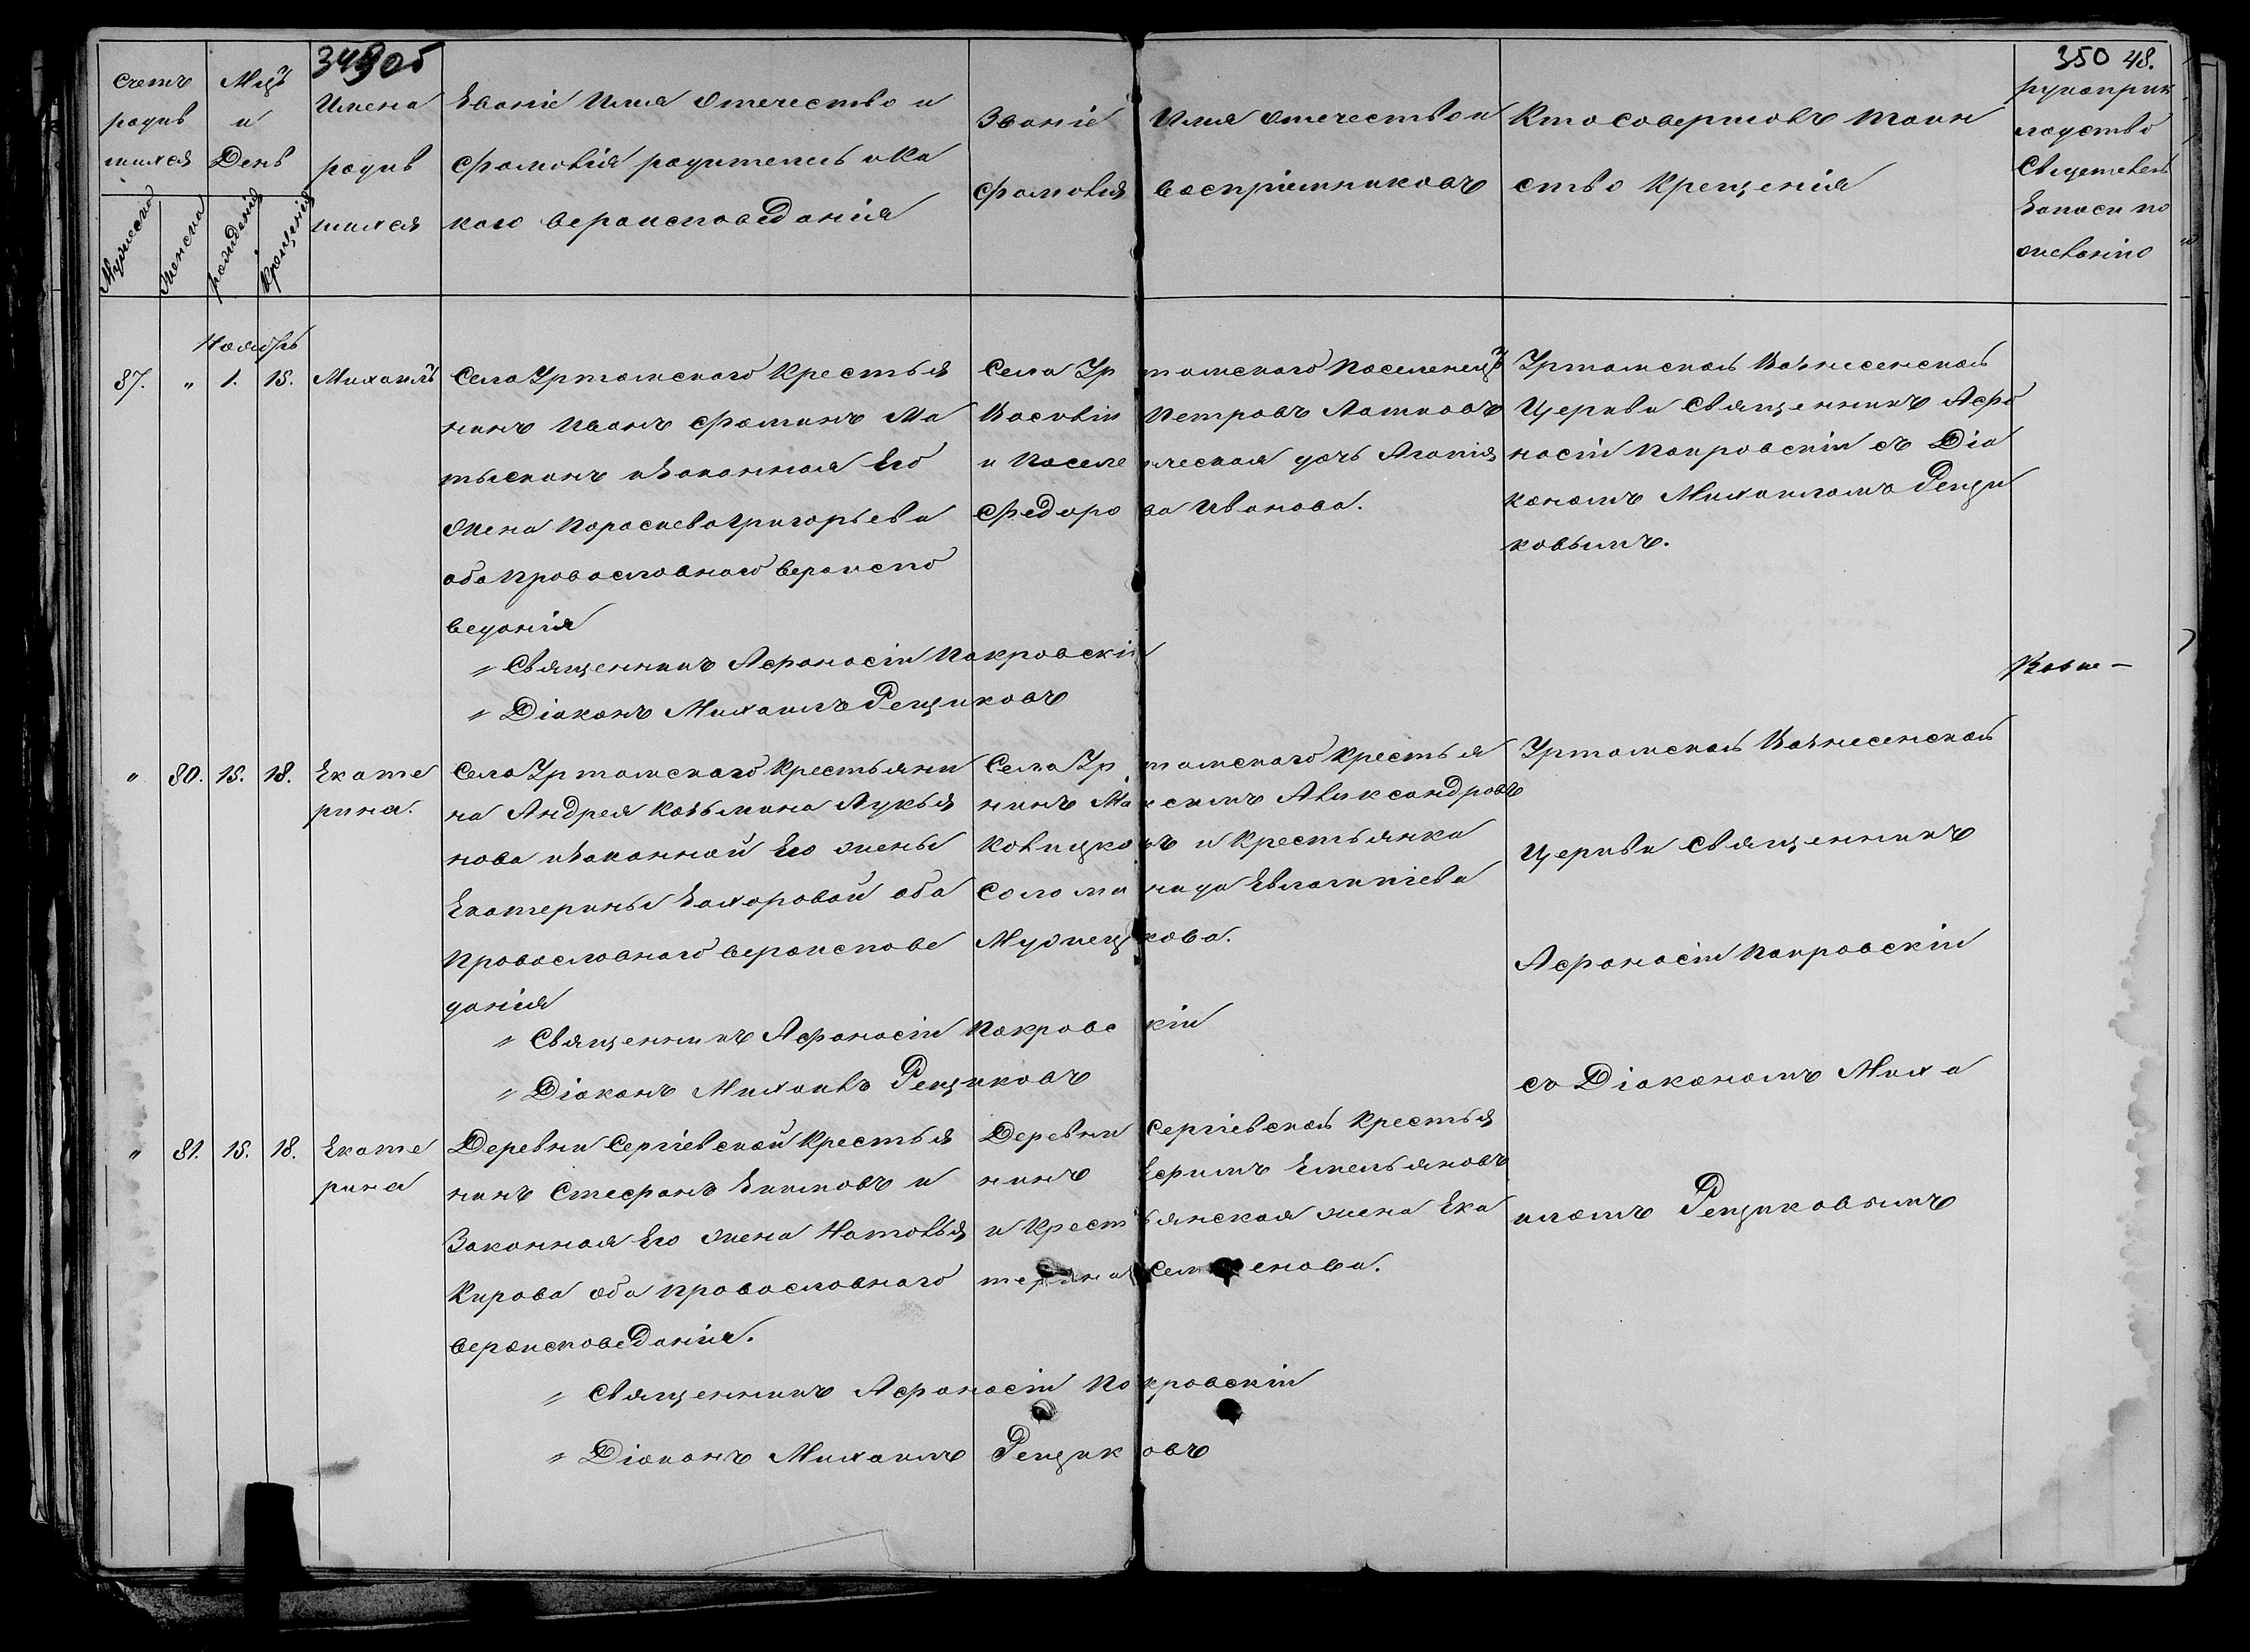 349об
350 48.
Счетъ
родив
шихся
Мужеска
Женска
Мцъ
и
День
рождения
крещения
Имена
родив
шихся
Званіе Имя Отечество и
Фамилія родителей и ка
кого вероисповеданія
Званіе Имя Отечество и
Фамилия воспріемниковъ
Кто совершалъ таин
ство Крещенія
рукоприк
ладство
Свидетелей
записи по
желанію
Ноябрь
87. " 1. 15.
Михаилъ
Села Уртамского Крестья
нинъ Иванъ Фоминъ Ма
тыскинъ и Законная Его
Жена Параскева Григорьева
оба Православного вероиспо
веданія
Села Уртамского Поселенецъ
Василіи Петровъ Латковъ
и Поселенческая дочь Агапія
Федорова Иванова.
Уртамской Вознесенской
Церкви Священникъ Афо
насіи Покровскіи съ Діа
кономъ Михаиломъ Рещи
ковымъ.
" Священникъ Афонасіи Покровскіи
" Діаконъ Михаилъ Рещиковъ
" 80. 15. 18.
Екате
рина.
Села Уртамского Крестьяни
на Андрея Козьмина Лукья
нова и Законной Его жены
Екатерины Захоровой оба
Православного вероиспове
данія
Села Уртамского Крестья
нинъ Максимъ Александровъ
и Крестьянка
Соломанида Евлампіева
Мурпецкова.
Уртамской Вознесенской
Церкви Священникъ
Афонасіи Покровскіи
съ Діакономъ Миха
иломъ Рещиковымъ
" Священникъ Афонасіи Покровскіи
" Діаконъ Михаилъ Рещиковъ
" 81. 15. 18.
Екате
рина
Деревни Сергіевской Крестья
нинъ Стефанъ и
Законная Его жена Наталья
Кирова оба православного
вероисповеданія.
Деревни Сергіевской Крестья
нинъ Ефимъ Емельяновъ
и Крестьянская жена Ека
терина Семенова.
" Священникъ Афонасіи Покровскіи
" Діаконъ Михаилъ Рещиковъ